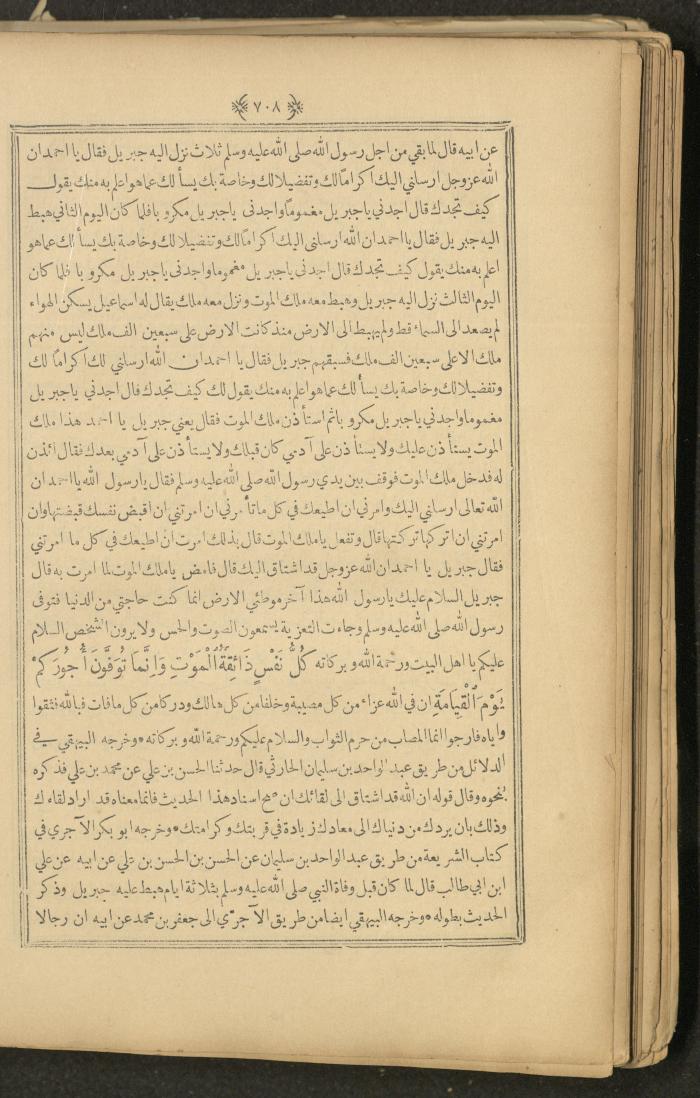 ٧٠٨
عن ابيه قال لما بقي من اجل رسول الله صلى الله عليه وسلم ثلاث نزل اليه جبريل فقال يا احمد ان
الله عز وجل ارسلني اليك اكراماً لك وتفضيلا لك وخاصة بك يسألك عما هو اعلم به منك يقول
كيف تجدك قال اجدني يا جبريل مغموماً واجدني يا جبريل مكروبا فلما كان اليوم الثاني هبط
اليه جبريل فقال يا احمد ان الله ارسلني اليك اكراماً لك وتفضيلا لك وخاصة بك يسألك عما هو
اعلم به منك يقول كيف تجدك قال اجدني يا جبريل مغموما واجدني يا جبريل مكروبا فلما كان
اليوم الثالث نزل اليه جبريل وهبط معه ملك الموت ونزل معه ملك يقال له اسماعيل يسكن الهواء
لم يصعد الى السماء قط ولم يهبط الى الارض منذ كانت الارض على سبعين الف ملك ليس منهم
ملك الا على سبعين الف ملك فسبقهم جبريل فقال يا احمد ان الله ارسلني لك اكراماً لك
وتفضيلا لك وخاصة بك يسألك عما هو اعلم به منك يقول لك كيف تجدك قال اجدني يا جبريل
مغموما واجدني يا جبريل مكروبا ثم استأذن ملك الموت فقال يعني جبريل يا احمد هذا ملك
الموت يستأذن عليك ولا يستأذن على آدمي كان قبلك ولا يستأذن على آدمي بعدك فقال ائذن
له فدخل ملك الموت فوقف بين يدي رسول الله صلى الله عليه وسلم فقال يا رسول الله يا احمد ان
الله تعالى ارسلني اليك وامرني ان اطيعك في كل ما تأمرني ان امرتني ان اقبض نفسك قبضتها وان
امرتني ان اتركها تركتها قال وتفعل يا ملك الموت قال بذلك امرت ان اطيعك في كل ما امرتني
فقال جبريل يا احمد ان الله عز وجل قد اشتاق اليك قال فامض يا ملك الموت لما امرت به قال
جبريل السلام عليك يا رسول الله هذا آخر موطئي الارض انما كنت حاجتي من الدنيا فتوفى
رسول الله صلى الله عليه وسلم وجاءت التعزية يسمعون الصوت والحس ولا يرون الشخص السلام
عليكم يا اهل البيت ورحمة الله وبركاته كُلُّ نَفْسٍ ذَائِقَةُ الْمَوْتِ وَإِنَّمَا تُوَفَّوْنَ أُجُورَكُمْ
يَوْمَ الْقِيَامَةِ ان في الله عزاء من كل مصيبة وخلفا من كل هالك ودركا من كل ما فات فبالله فثقوا
واياه فارجوا انما المصاب من حرم الثواب والسلام عليكم ورحمة الله وبركاته ۞ وخرجه البيهقي في
الدلائل من طريق عبد الواحد بن سليمان الحارثي قال حدثنا الحسن بن علي عن محمد بن علي فذكره
بنحوه وقال قوله ان الله قد اشتاق الى لقائك ان صح اسناد هذا الحديث فانما معناه قد اراد لقاءك
وذلك بان يردك من دنياك الى معادك زيادة في قربتك وكرامتك ۞ وخرجه ابو بكر الآجري في
كتاب الشريعة من طريق عبد الواحد بن سليمان عن الحسن بن الحسن بن علي عن ابيه عن علي
ابن ابي طالب قال لما كان قبل وفاة النبي صلى الله عليه وسلم بثلاثة ايام هبط عليه جبريل وذكر
الحديث بطوله ۞ وخرجه البيهقي ايضا من طريق الآجرّي الى جعفر بن محمد عن ابيه ان رجالا